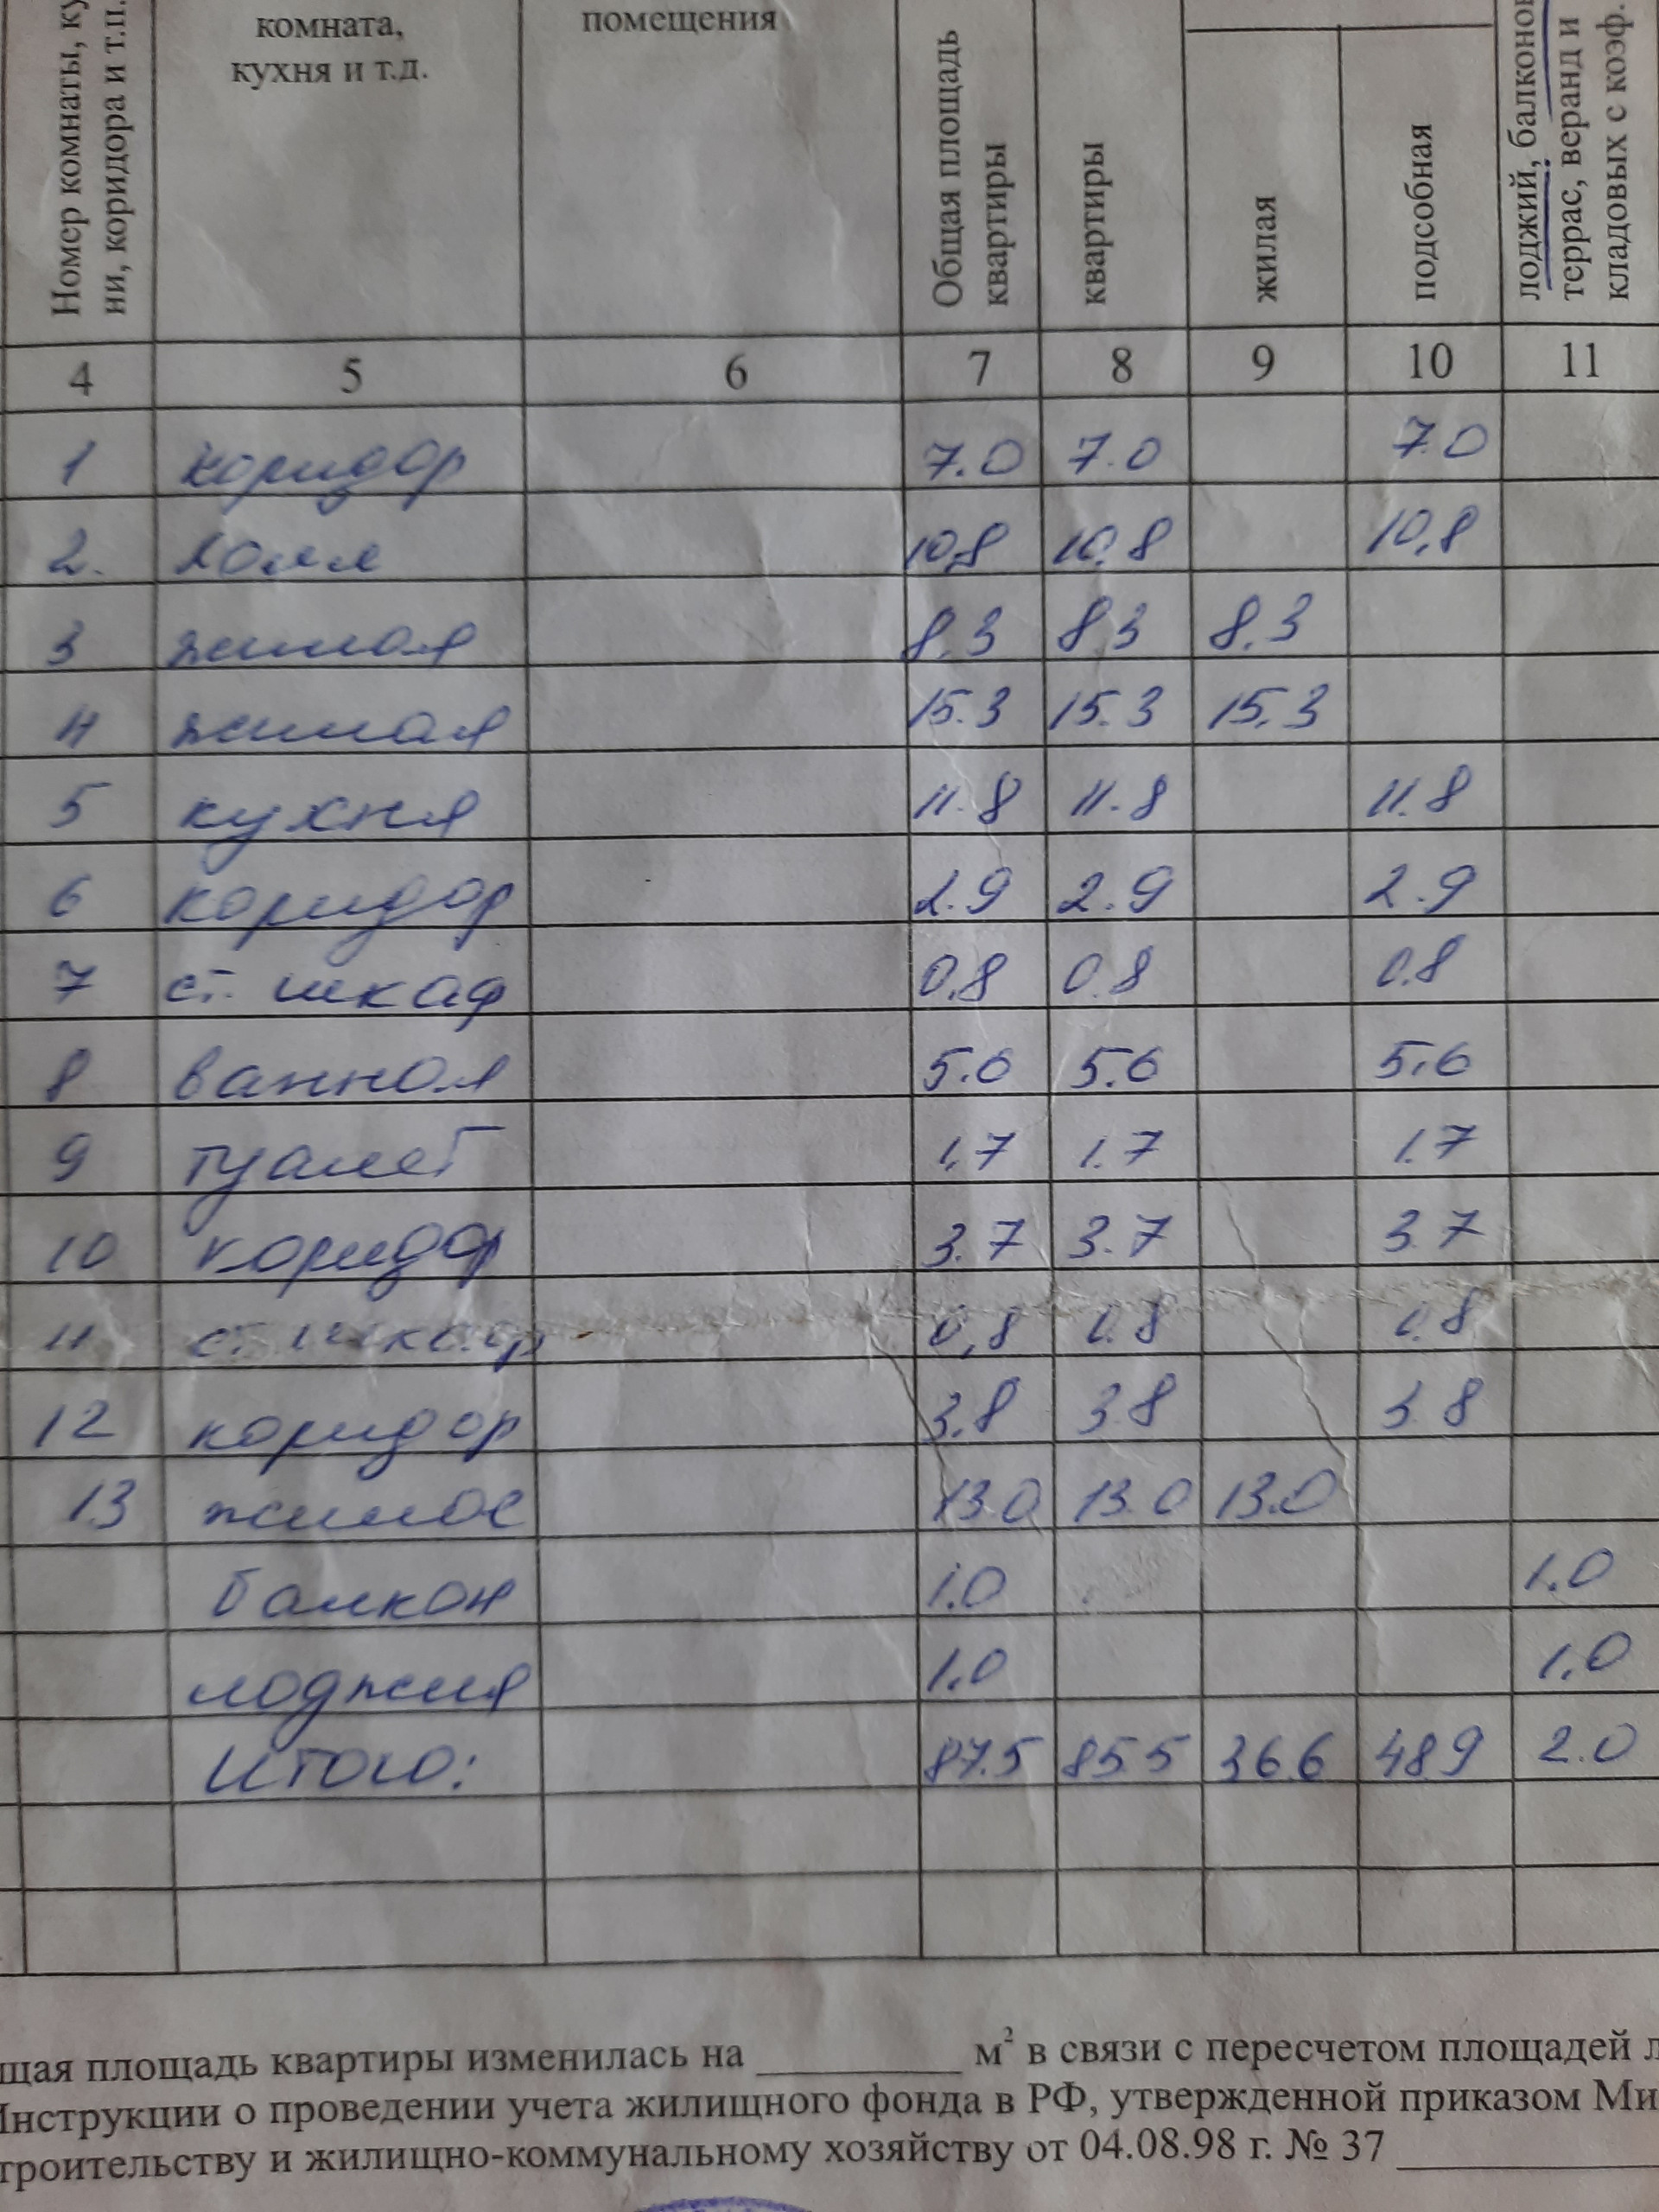 Номер комнаты, ку
ни, коридора и т.п.
комната,
кухня и т.д.
помещения
Общая площадь
квартиры
квартиры
жилая
подсобная
лоджий, балконов
террас, веранд и
кладовых с коэф.
4 5 6 7 8 9 10 11
1 коридор 7.0 7.0 7.0
2. холл 10,8 10,8 10,8
3 жилая 8,3 8,3 8,3
4 жилая 15.3 15.3 15,3
5 кухня 11.8 11.8 11.8
6 коридор 2.9 2.9 2.9
7 ст. шкаф 0,8 0.8 0.8
8 ванная 5.6 5.6 5.6
9 туалет 1,7 1.7 1.7
10 коридор 3.7 3.7 3.7
11 ст. шкаф 0,8 0.8 0.8
12 коридор 3.8 3.8 3.8
13 жилое 13.0 13.0 13.0
балкон 1.0 1.0
лоджия 1.0 1.0
Итого: 87.5 85.5 36.6 48.9 2.0
щая площадь квартиры изменилась на _________ м² в связи с пересчетом площадей л
Инструкции о проведении учета жилищного фонда в РФ, утвержденной приказом Ми
троительству и жилищно-коммунальному хозяйству от 04.08.98 г. № 37 ___________